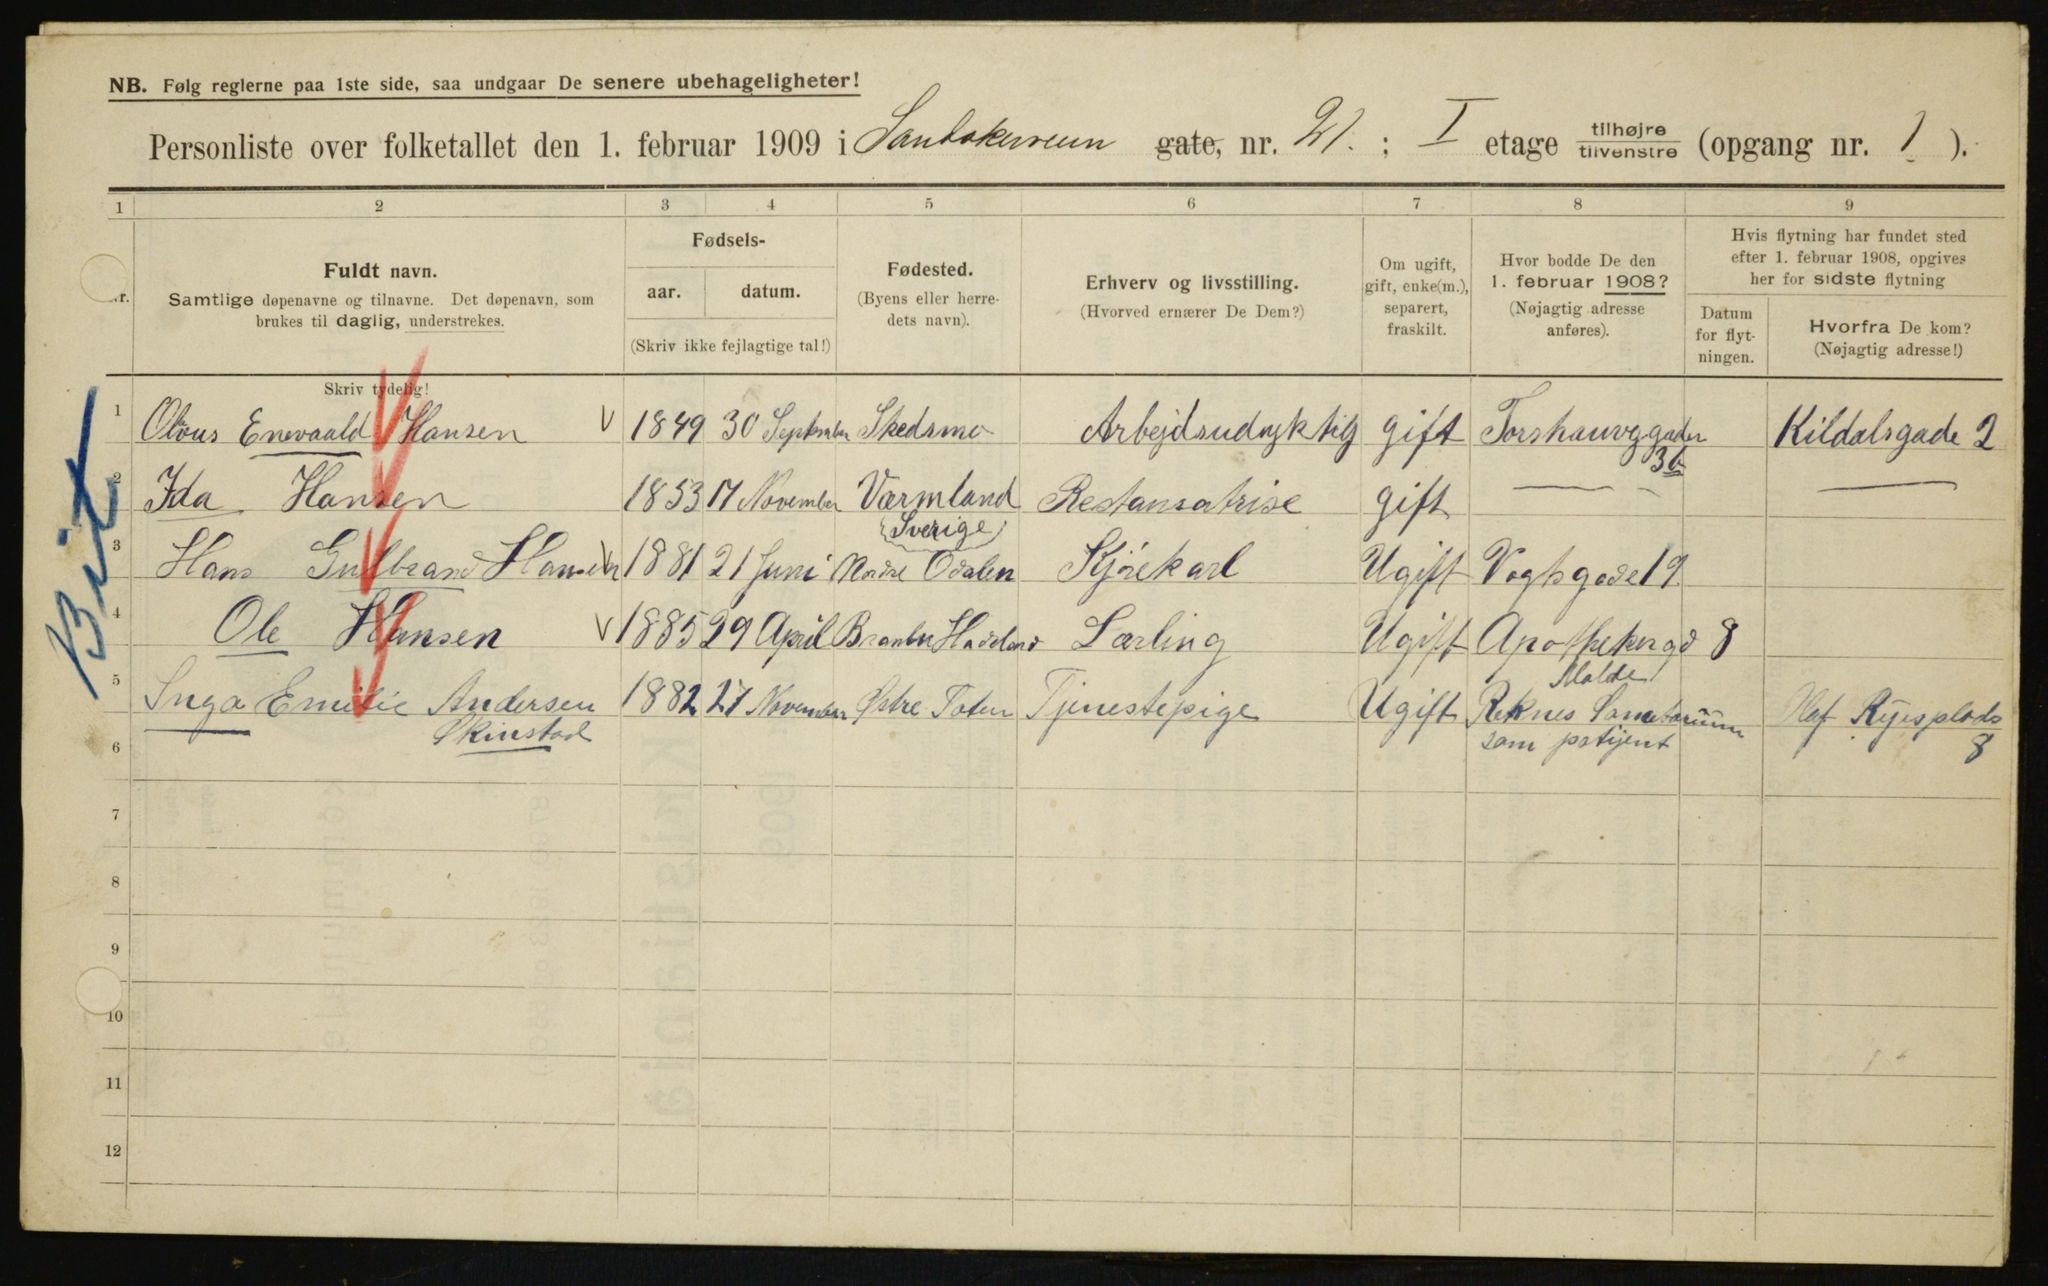 NB. Følg reglerne paa 1ste side, saa undgaar De senere ubehageligheter!
Personliste over folketallet den 1. februar 1909 i Sandakerveien gate, nr. 21. ; I etage tilhøjre tilvenstre (opgang nr. 1 ).
1 2 3 4 5 6 7 8 9
Nr.
Fuldt navn.
Samtlige døpenavne og tilnavne. Det døpenavn, som
brukes til daglig, understrekes.
Skriv tydelig!
Fødsels-
aar. datum.
(Skriv ikke fejlagtige tal!)
Fødested.
(Byens eller herre-
dets navn).
Erhverv og livsstilling.
(Hvorved ernærer De Dem?)
Om ugift,
gift, enke(m.),
separert,
fraskilt.
Hvor bodde De den
1. februar 1908?
(Nøjagtig adresse
anføres).
Hvis flytning har fundet sted
efter 1. februar 1908, opgives
her for sidste flytning
Datum
for flyt-
ningen.
Hvorfra De kom?
(Nøjagtig adresse!)
1 Olvus Enevaald Hansen V 1849 30 September Skedsmo Arbejdsudyktig gift Torshauvggaden 3b Kildalsgade 2
2 Ida Hansen 1853 17 November Værmland gift
(Sverige)
3 Hans Gulbrand Hansen V 1881 21 Juni Nordre Odalen Kjørekarl Ugift Vogtsgade 19
4 Ole Hansen V 1885 29 April Brandbu Hadeland Lærling Ugift Apothekergd 8
5 Inga Emilie Andersen 1882 27 November Østre Toten Tjenestepige Ugift Molde
Reknes Sanatorium Olaf Ryesplads
6 Skinstad som patijent 8
7
8
9
10
11
12